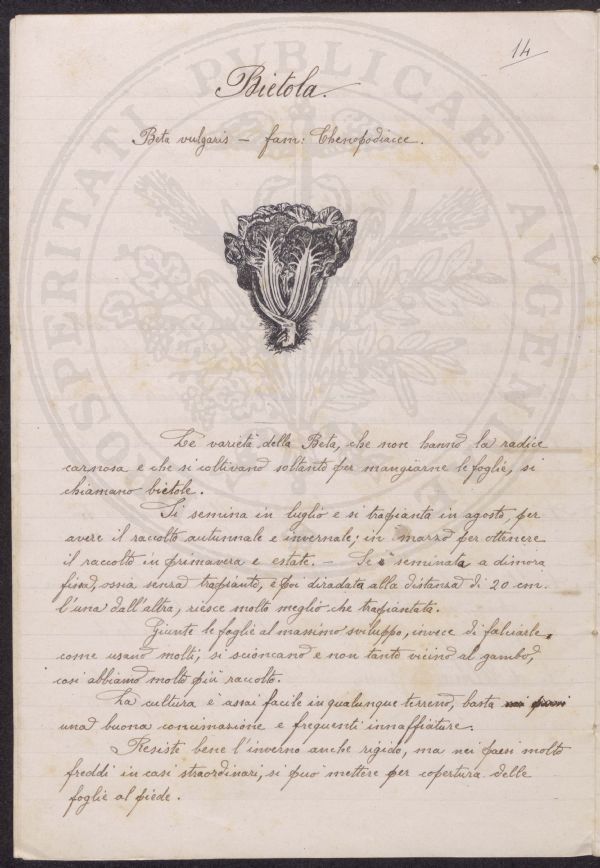 14
Bietola.
Beta vulgaris – fam: Chenopodiacee.
Le varietà della Beta, che non hanno la radice
carnosa e che si coltivano soltanto per mangiarne le foglie, si
chiamano bietole.
Si semina in luglio e si trapianta in agosto, per
avere il raccolto autunnale e invernale; in marzo per ottenere
il raccolto in primavera e estate. – Se è seminata a dimora
fissa, ossia senza trapianto, e poi diradata alla distanza di 20 cm.
l'una dall'altra, riesce molto meglio che trapiantata.
Giunte le foglie al massimo sviluppo, invece di falciarle,
come usano molti, si scioncano e non tanto vicino al gambo,
così abbiamo molto più raccolto.
La cultura è assai facile in qualunque terreno, basta
una buona concimazione e frequenti innaffiature.
Resiste bene l'inverno anche rigido, ma nei paesi molto
freddi in casi straordinari, si può mettere per copertura delle
foglie al piede.
PROSPERITATI PUBLICAE AVGENDAE